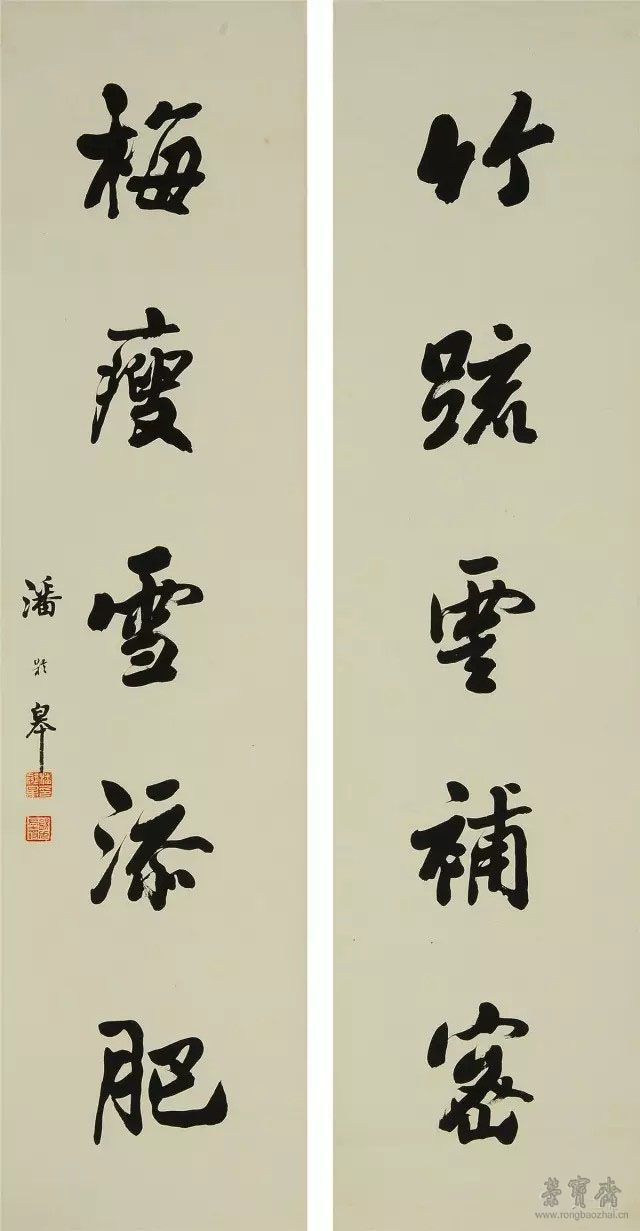 竹疏雲補密
梅瘦雪添肥
潘齡皋
榮寶齋
www.rongbaozhai.cn